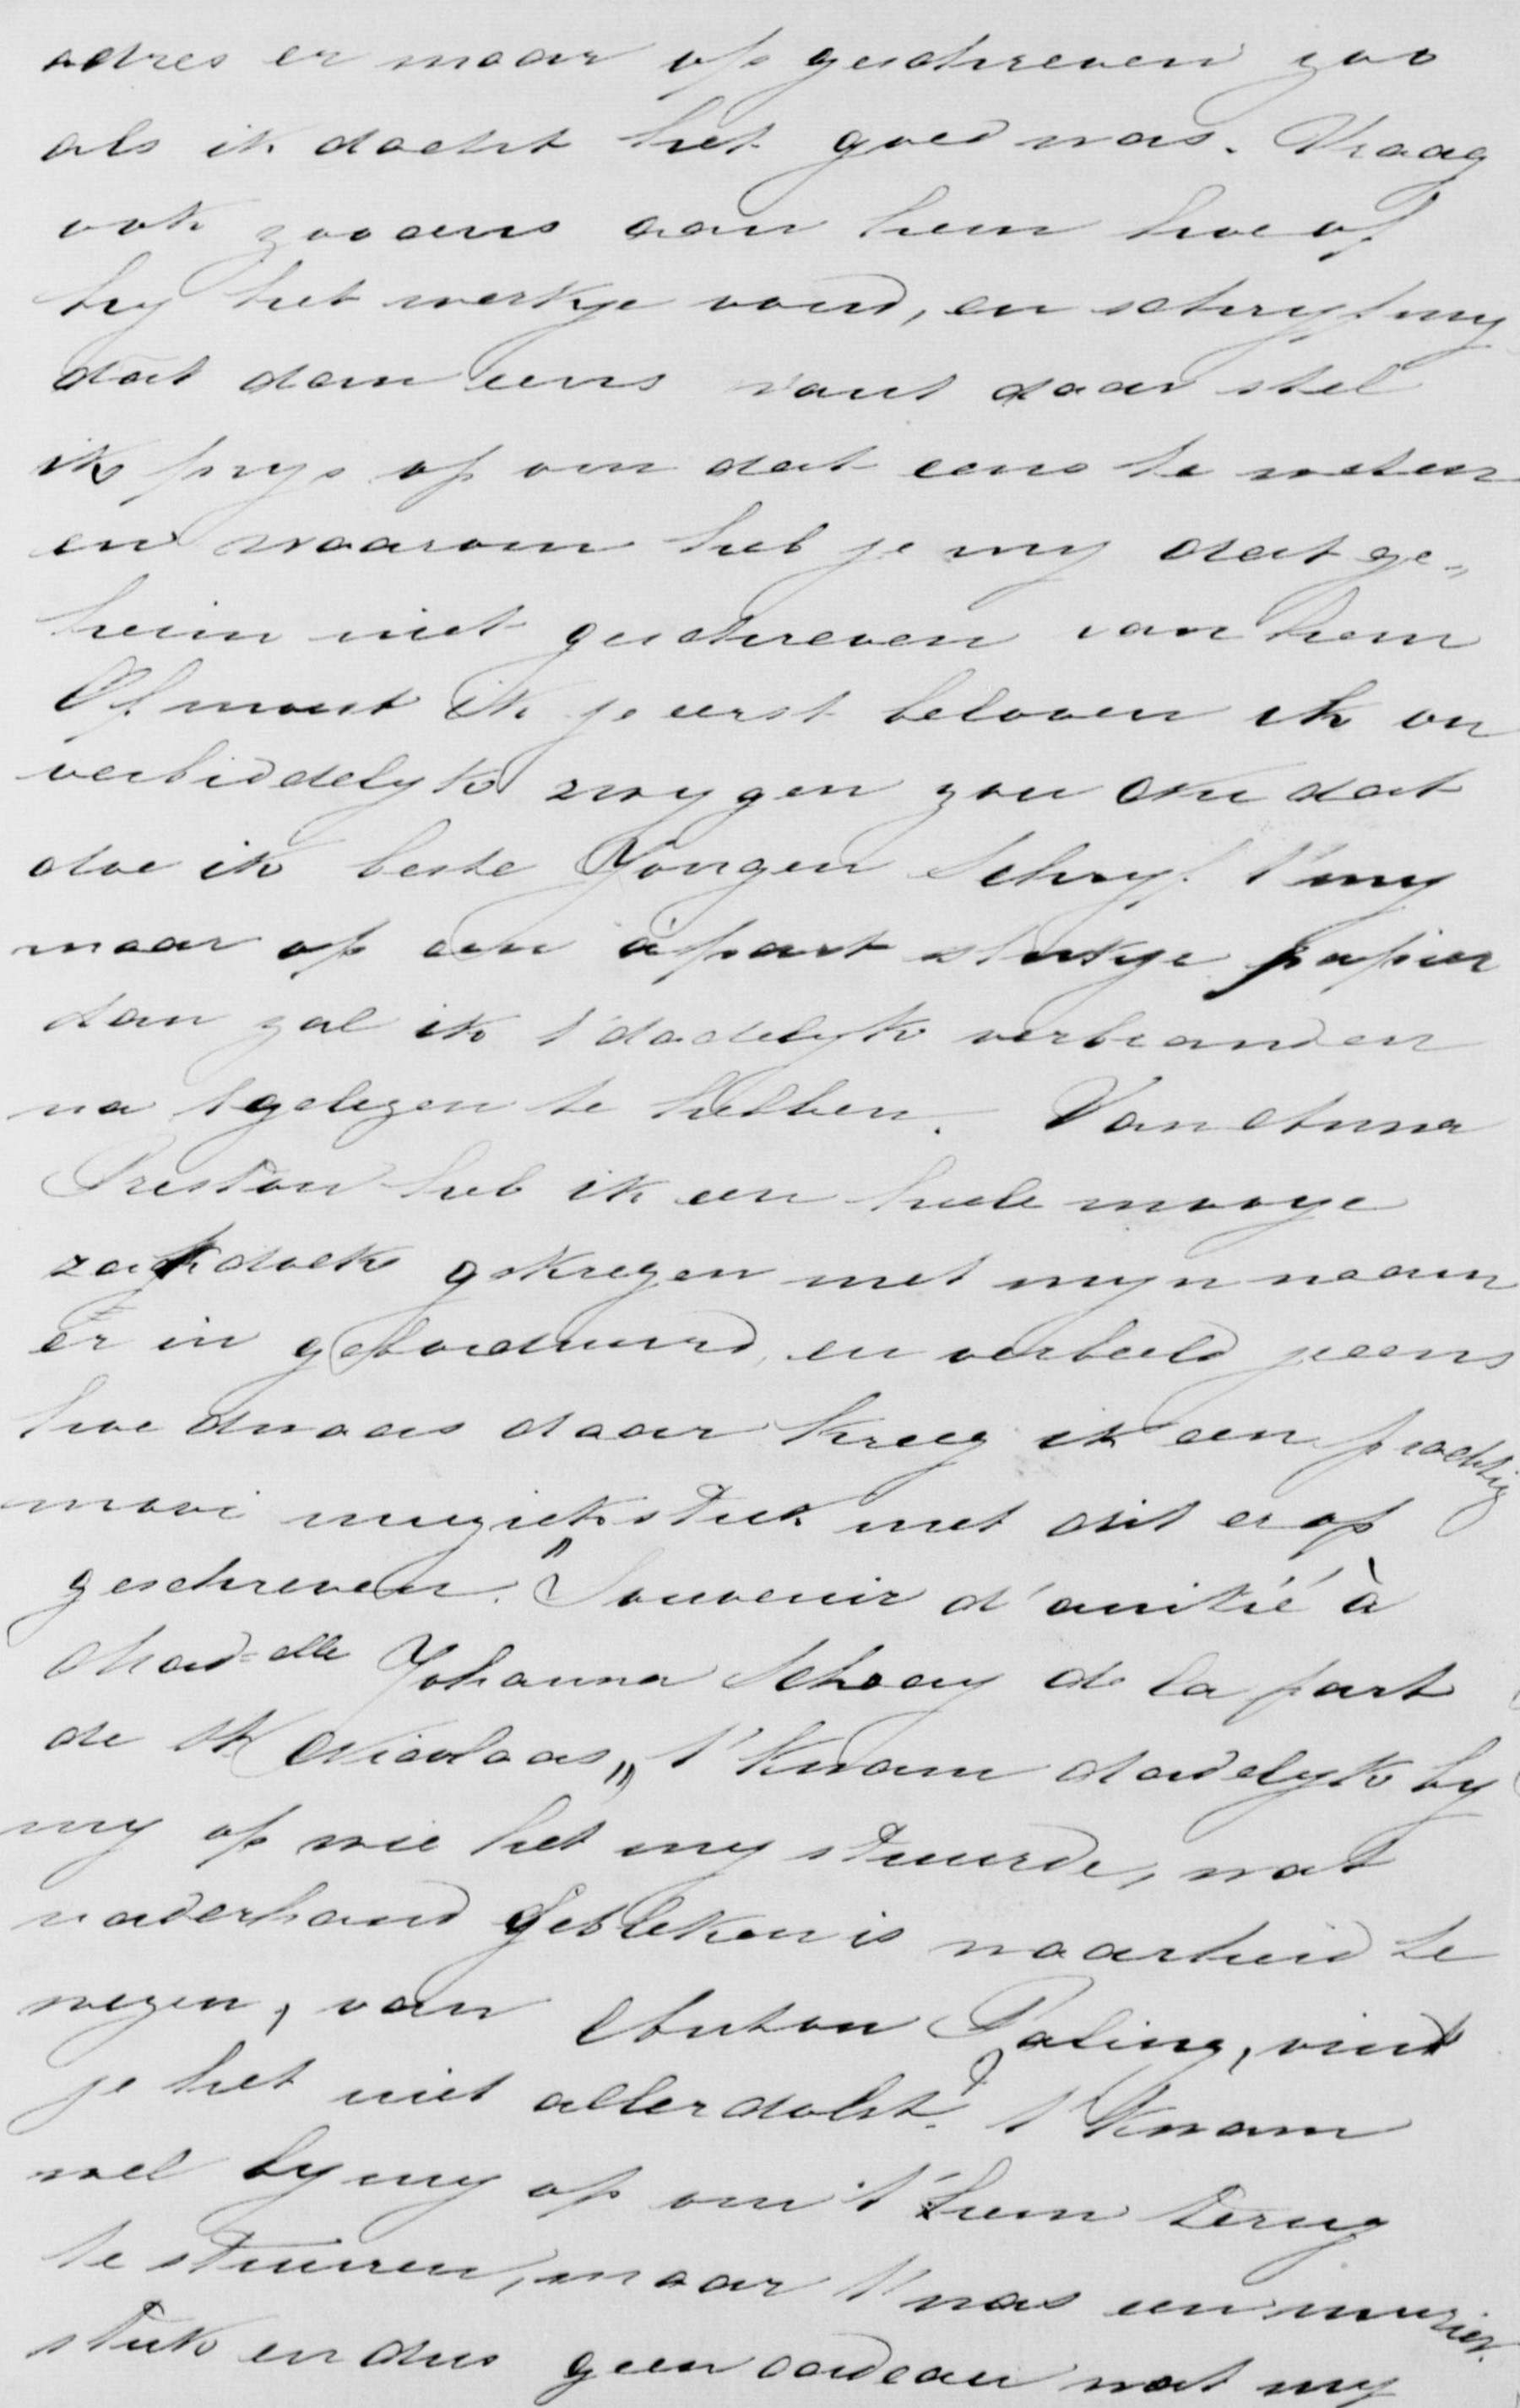 adres er maar op geschreven zoo
als ik dacht het goed was. Vraag
ook zoo eens aan hem hoe of
hy het werkje vond, en schryf my
dat dan eens want daar stel
ik prys op om dat eens te weten
en waarom heb je my dat ge„
heim niet geschreven van hem
Of moest ik je eerst beloven ik on
verbiddelyk zwygen zou Nu dat
doe ik beste Jongen Schryf t' my
maar op een apart stukje papier
dan zal ik t' dadelyk verbranden
na t gelezen te hebben. Van Anna
Preston heb ik een hele mooye
zakdoek gekregen met myn naam
er in geborduurd, en verbeeld je eens
hoe dwaas daar kreeg ik een prachtig
mooi muziekstuk met dit er op
geschreven. "Souvenir d'amitié à
Mad=elle Johanna Schaay de la part
de St Nicolaas„ t' kwam dadelyk by
my op wie het my stuurde, wat
naderhand gebleken is waarheid te
wezen, van Anton Paling, vind
je het niet allerdolst? t' Kwam
wel by my op om t' hem terug
te sturen, maar t' was een muziek
stuk en dus geen cadeau wat my